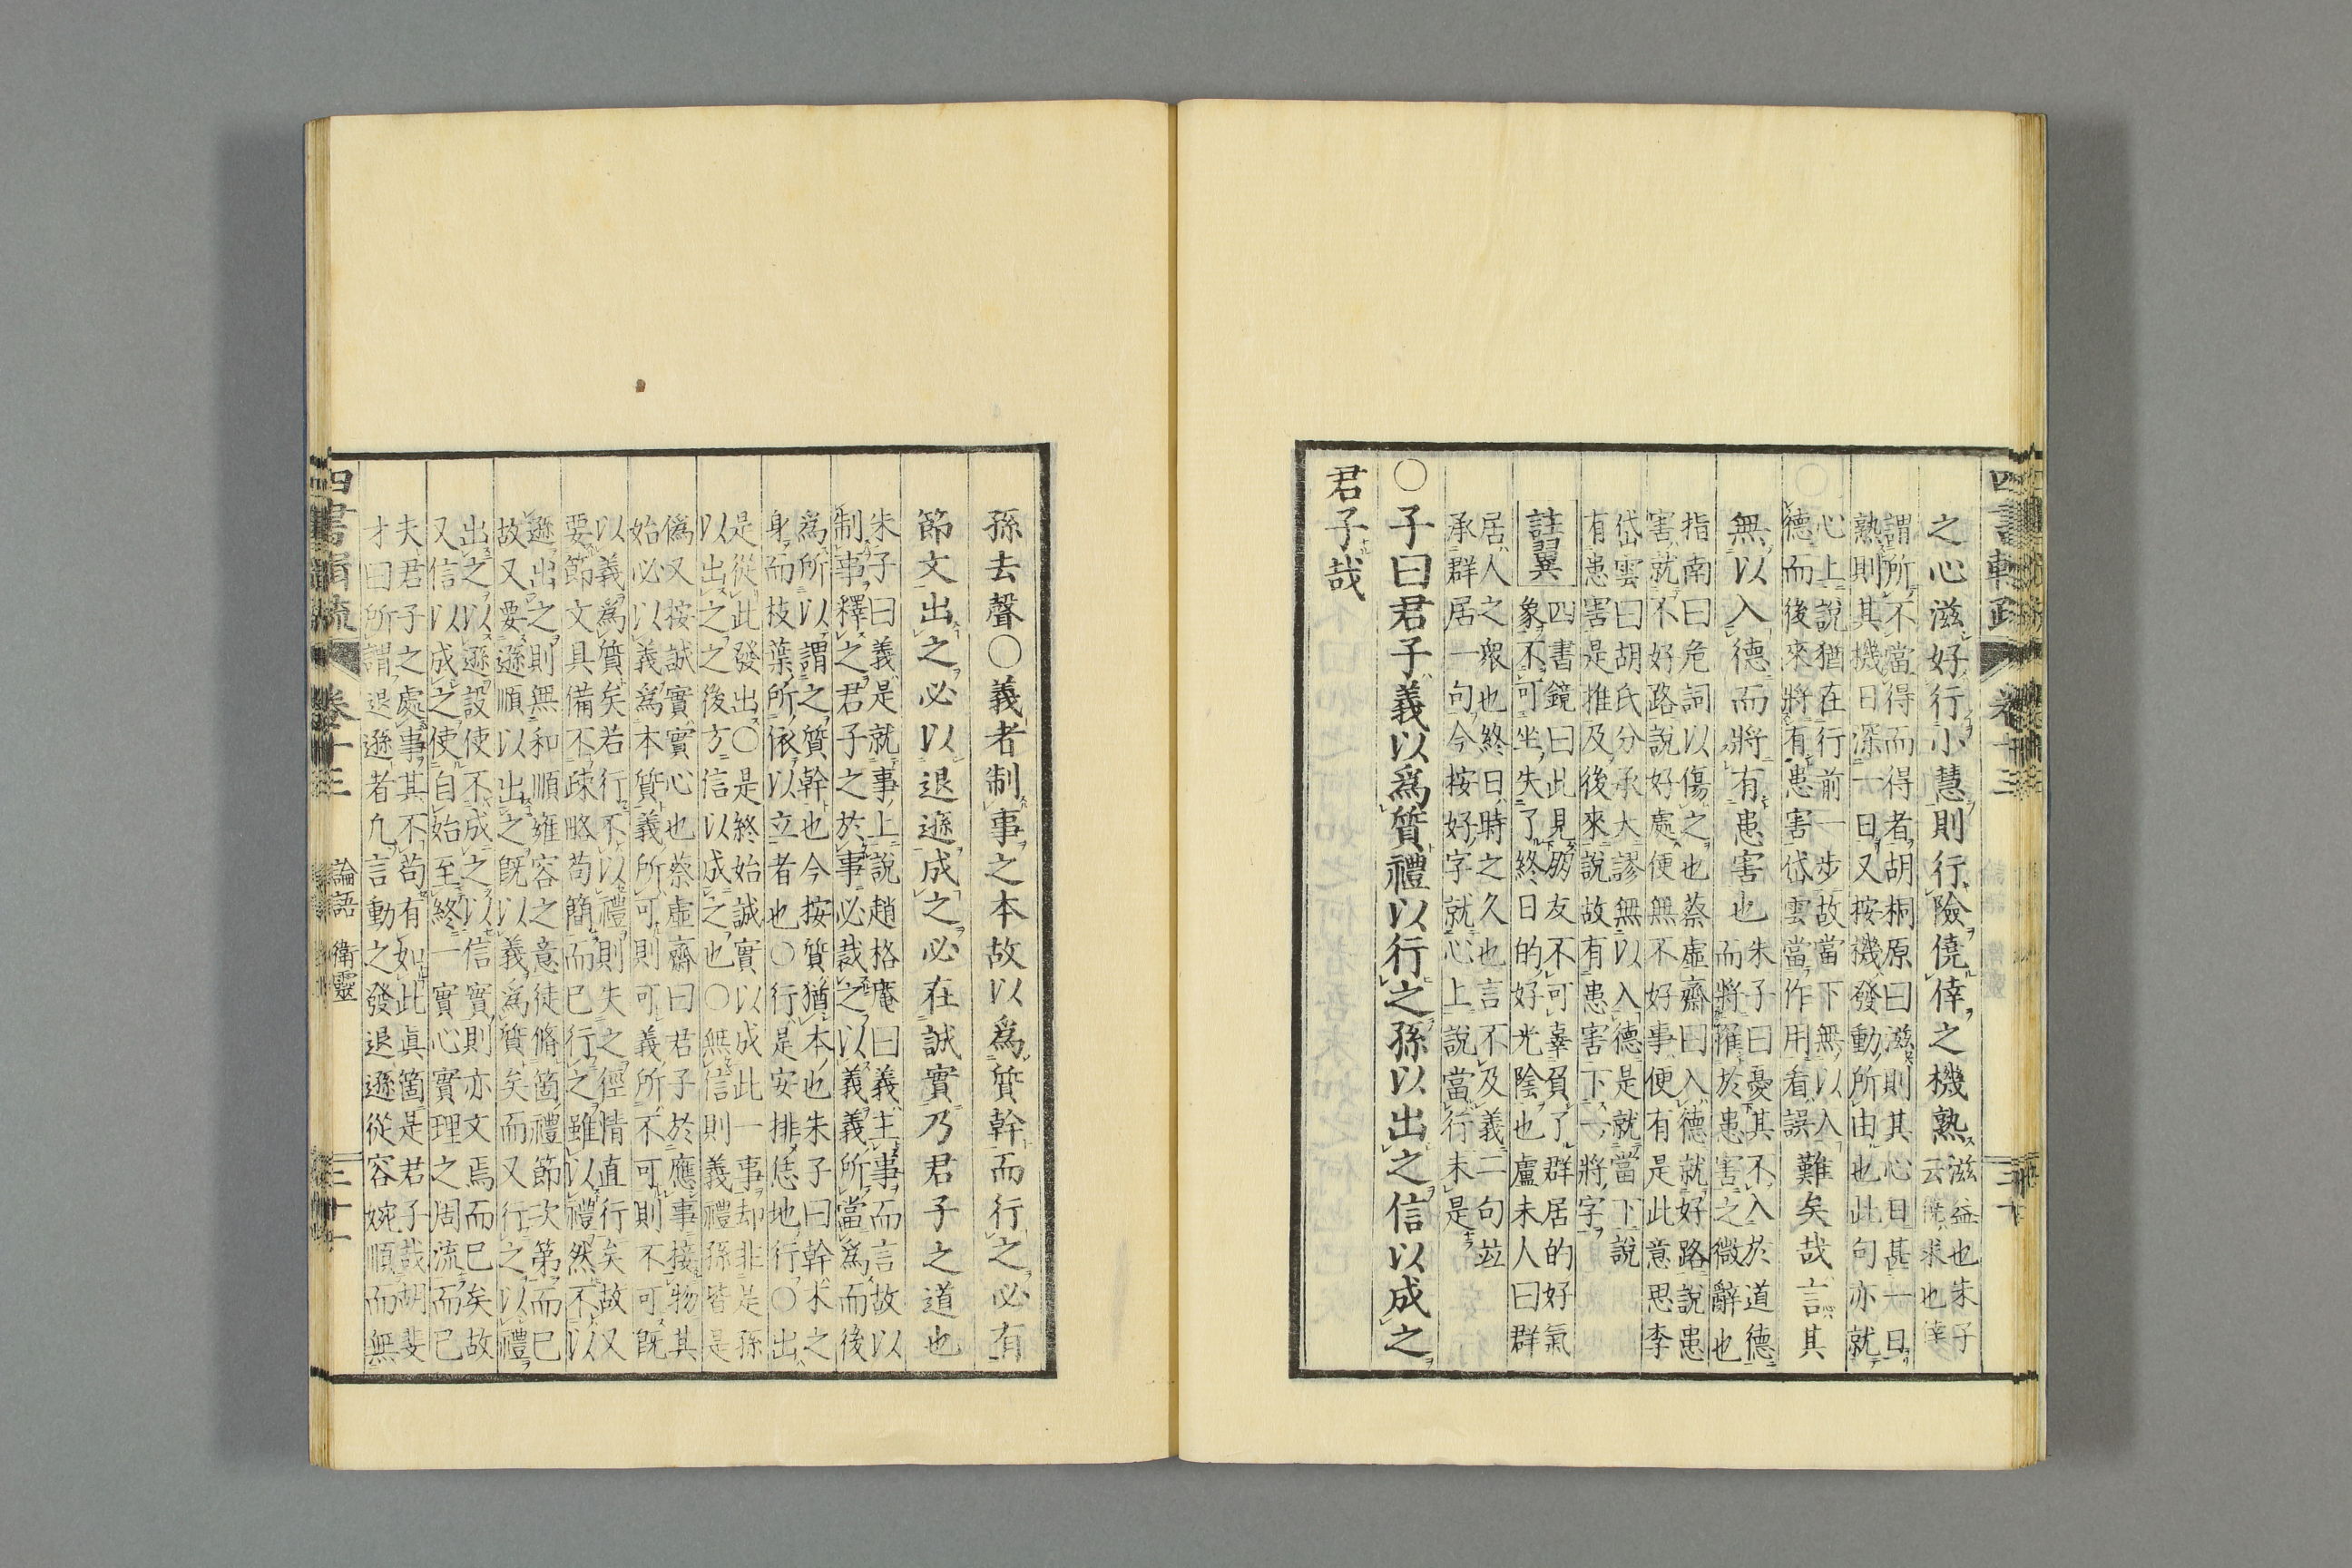 之心滋好行小慧則行險僥倖之機熟滋益也朱子
云僥求也倖
謂所不當得而得者胡桐原曰滋則其心日甚一日
熟則其機日深一日又按機發動所由也此句亦就
心上說猶在行前一步故當下無以入
德而後來將有患害岱雲當作用看誤難矣哉言其
無以入德而將有患害也朱子曰憂其不入於道德
而將罹於患害之微辭也
指南曰危詞以傷之也蔡虛齋曰入德就好路說患
害就不好路說好處便無不好事便有是此意思李
岱雲曰胡氏分承大謬無以入德是就當下說
有患害是推及後來說故有患害下一將字
註翼四書鏡曰此見朋友不可辜負了群居的好氣
象不可坐失了終日的好光陰也盧未人曰群
居人之衆也終日時之久也言不及義二句並
承群居一句今按好字就心上說當行未是
○子曰君子義以爲質禮以行之孫以出之信以成之
君子哉
四書輯疏 卷十三 三十
孫去聲○義者制事之本故以爲質幹而行之必有
節文出之必以退遜成之必在誠實乃君子之道也
朱子曰義是就事上說趙格庵曰義主事而言故以
制事釋之君子之於事必裁之以義義所當爲而後
爲所以謂之質幹也今按質猶本也朱子曰幹木之
身而枝葉所依以立者也○行是安排恁地行○出
是從此發出○是終始誠實以成此一事却非是孫
以出之之後方信以成之也○無信則義禮孫皆是
僞又按誠實實心也蔡虛齋曰君子於應事接物其
始必以義爲本質義所可則可義所不可則不可既
以義爲質矣若行不以禮則失之徑情直行矣故又
要節文具備不疎略苟簡而已行之雖以禮然不以
遜出之則無和順雍容之意徒脩箇禮節次第而已
故又要遜順以出之既以義爲質矣而又行之以禮
出之以遜設使不成之以信實則亦文焉而已矣故
又信以成之使自始至終一實心實理之周流而已
夫君子之處事其不苟有如此眞箇是君子哉胡斐
才曰所謂退遜者凡言動之發退遜從容婉順而無
四書輯疏 卷十三 論語 衛靈 三十一